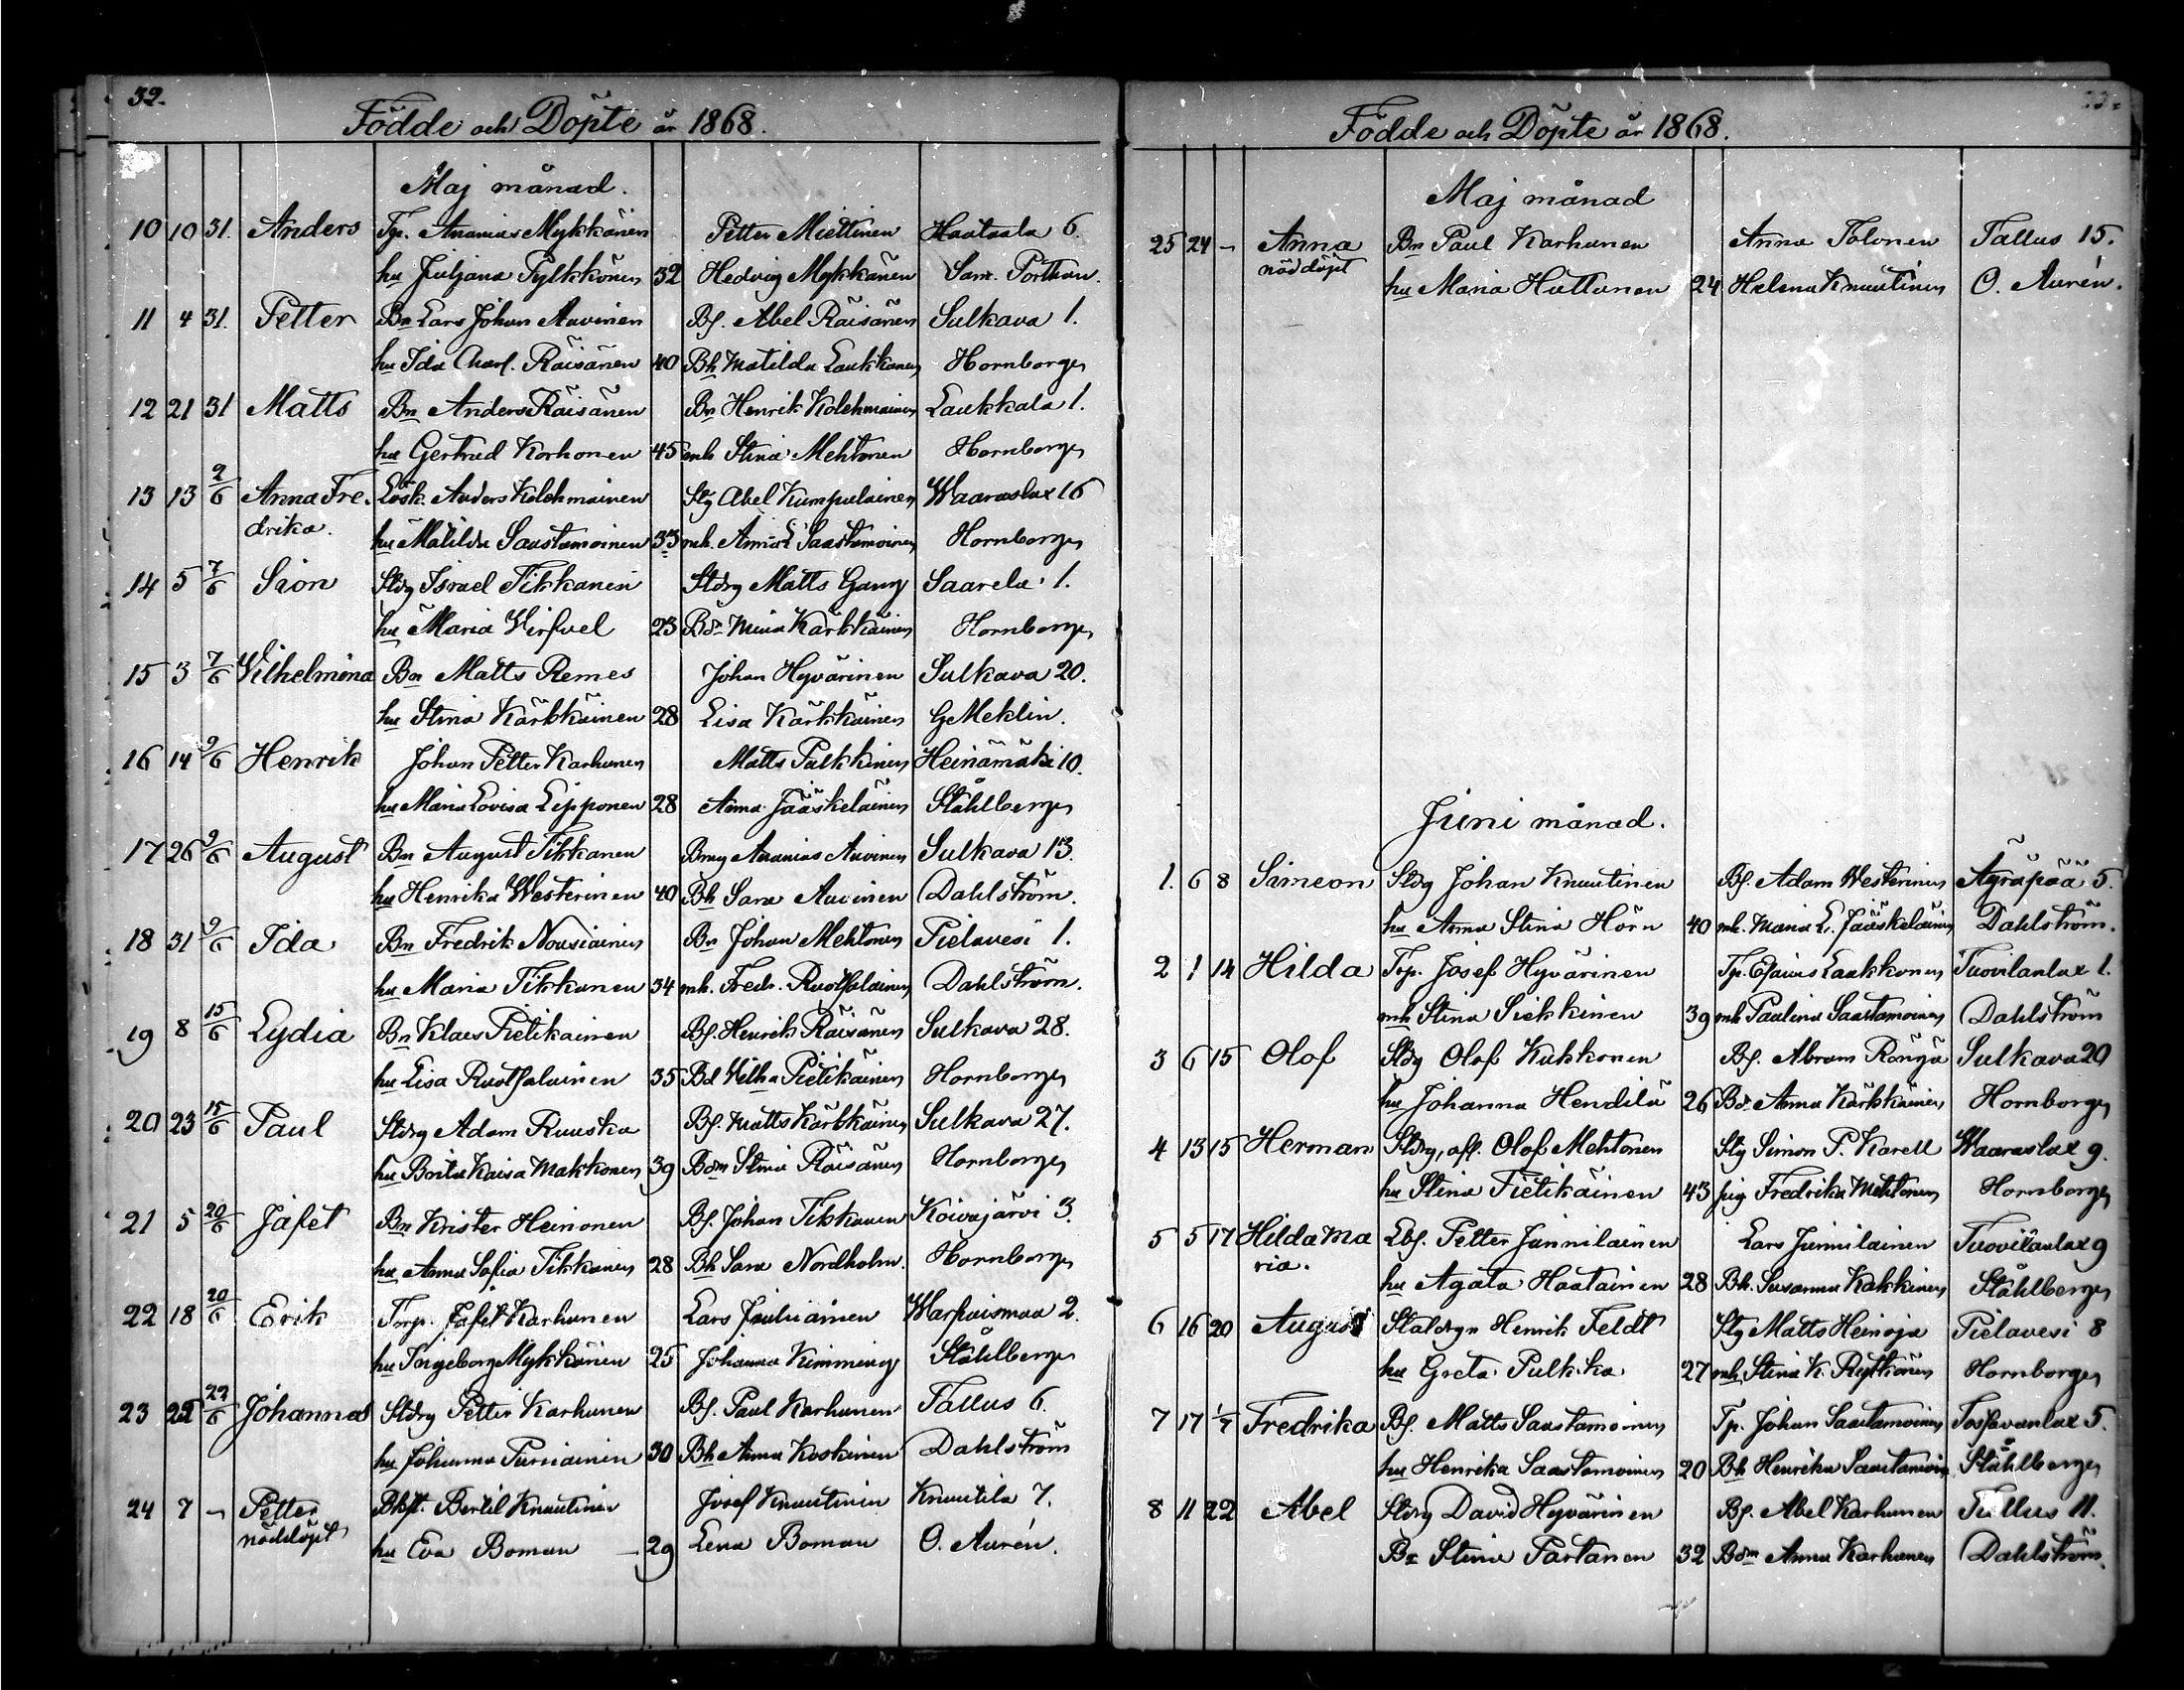 32.
Födde och Döpte år 1868.
Maj månad.
10 10 31. Anders Tp. Ananias Mykkänen Petter Miettinen Haatala 6.
hu Juljana Pylkkönen 32 Hedvig Mykkänen Sam. Porthan.
11 4 31. Petter Bn Lars Johan Auvinen Bf. Abel Räisänen Sulkava 1.
hu Ida Charl. Räisänen 40 Bh Matilda Laukkanen Hornborg
12 21 31 Matts Bn Anders Räisänen Bn Henrik Kolehmainen Laukkala 1.
hu Gertrud Korhonen 45 mh Stina Mehtonen Hornborg
13 13 2/6 Anna Fre- Lösk. Anders Kolehmainen Stg Abel Kumpulainen Waaraslax 16
drika. hu Matilda Saastamoinen 33 mh. Anna L Saastamoinen Hornborg
14 5 7/6 Sion Stdrg Israel Tikkanen Stdrg Matts Gang Saarela 1.
hu Maria Wirfvel 23 Bdr Mina Kärkkäinen Hornborg
15 3 7/6 Wilhelmina Bn Matts Remes Johan Hyvärinen Sulkava 20.
hu Stina Kärkkäinen 28 Lisa Kärkkäinen G Meklin.
16 14 9/6 Henrik Johan Petter Karhunen Matts Pulkkinen Heinämäki 10.
hu Maria Lovisa Lipponen 28 Anna Jääskeläinen Ståhlberg
17 26 9/6 August Bn August Tikkanen Bmg Ananias Auvinen Sulkava 13.
hu Henrika Westerinen 40 Bh Sara Auvinen Dahlström.
18 31 9/6 Ida Bn Fredrik Nousiainen Bn Johan Mehtonen Pielavesi 1.
hu Maria Tikkanen 34 mh. Fredr. Ruotsalainen Dahlström.
19 8 15/6 Lydia Bn Klaes Pietikainen Bf. Henrik Räisänen Sulkava 28.
hu Lisa Ruotsalainen 35 Bd Wilh:a Pietikäinen Hornborg
20 23 15/6 Paul Stdrg Adam Ruuska Bf. Matts Kärkkäinen Sulkava 27.
hu Brita Kaisa Makkonen 39 Bdm Stina Räisänen Hornborg
21 5 20/6 Jafet Bn Krister Heinonen Bf. Johan Tikkanen Koivujärvi 3.
hu Anna Sofia Tikkanen 28 Bh Sara Nordholm. Hornborg
22 18 20/6 Erik Torp. Jafet Karhunen Lars Warpaismaa 2.
hu Ingeborg Mykkänen 25 Johanna Kimming Ståhlberg
23 22/6 Johannes Stdrg Petter Karhunen Bf. Paul Karhunen Tallus 6.
hu Johanna 30 Bh Anna Koskinen Dahlström
24 7 - Petter Bertil Knuutinen Josef Knuutinen Knuutila 7.
nöddöpt hu Eva Boman - 29 Lena Boman O. Aurén.
33.
Födde och Döpte år 1868.
Maj månad
25 24 - Anna Bn Paul Karhunen Anna Tolonen Tallus 15.
nöddöpt hu Maria Huttunen 24 Helena Knuutinen O. Aurén.
Juni månad.
1. 6 8 Simeon Stdrg Johan Knuutinen Bf. Adam Westerinen Äyräpää 5.
hu Anna Stina Hörn 40 mh. Maria L. Jääskeläinen Dahlström.
2 1 14 Hilda Torp. Josef Hyvärinen Tp. Esaias Laakkonen Tuovilanlax 1.
mh Stina Siekkinen 39 mh Paulina Saastamoinen Dahlström
3 6 15 Olof Stdrg Olof Kukkonen Bf. Abram Röngä Sulkava 29
hu Johanna Hendilä 26 Bdr Anna Kärkkäinen Hornborg
4 13 15 Herman Stdrg, afs. Olof Mehtonen Stg Simon P. Karell Waaraslax 9.
hu Stina Pietikäinen 43 pig Fredrika Mehtonen Hornborg
5 5 17 Hilda Ma Lbf. Petter Junnilainen Lars Junnilainen Tuovilanlax 9
ria. hu Agata Haatainen 28 Bh. Susanna Kakkinen Ståhlberg
6 16 20 August Statdrgn Henrik Feldt Stg Matts Heinoja Pielavesi 8
hu Greta Pulkka 27 mh. Stina K. Rytkönen Hornborg
7 17 1/7 Fredrika Bf. Matts Saastamoinen Tp. Johan Saastamoinen Tossavanlax 5.
hu Henrika Saastamoinen 20 Bh Henrika Saastamoin Ståhlberg
8 11 22 Abel Stdrg David Hyvärinen Bf. Abel Karhunen Tallus 11.
Stina Partanen 32 Bdm Anna Karhunen Dahlström.